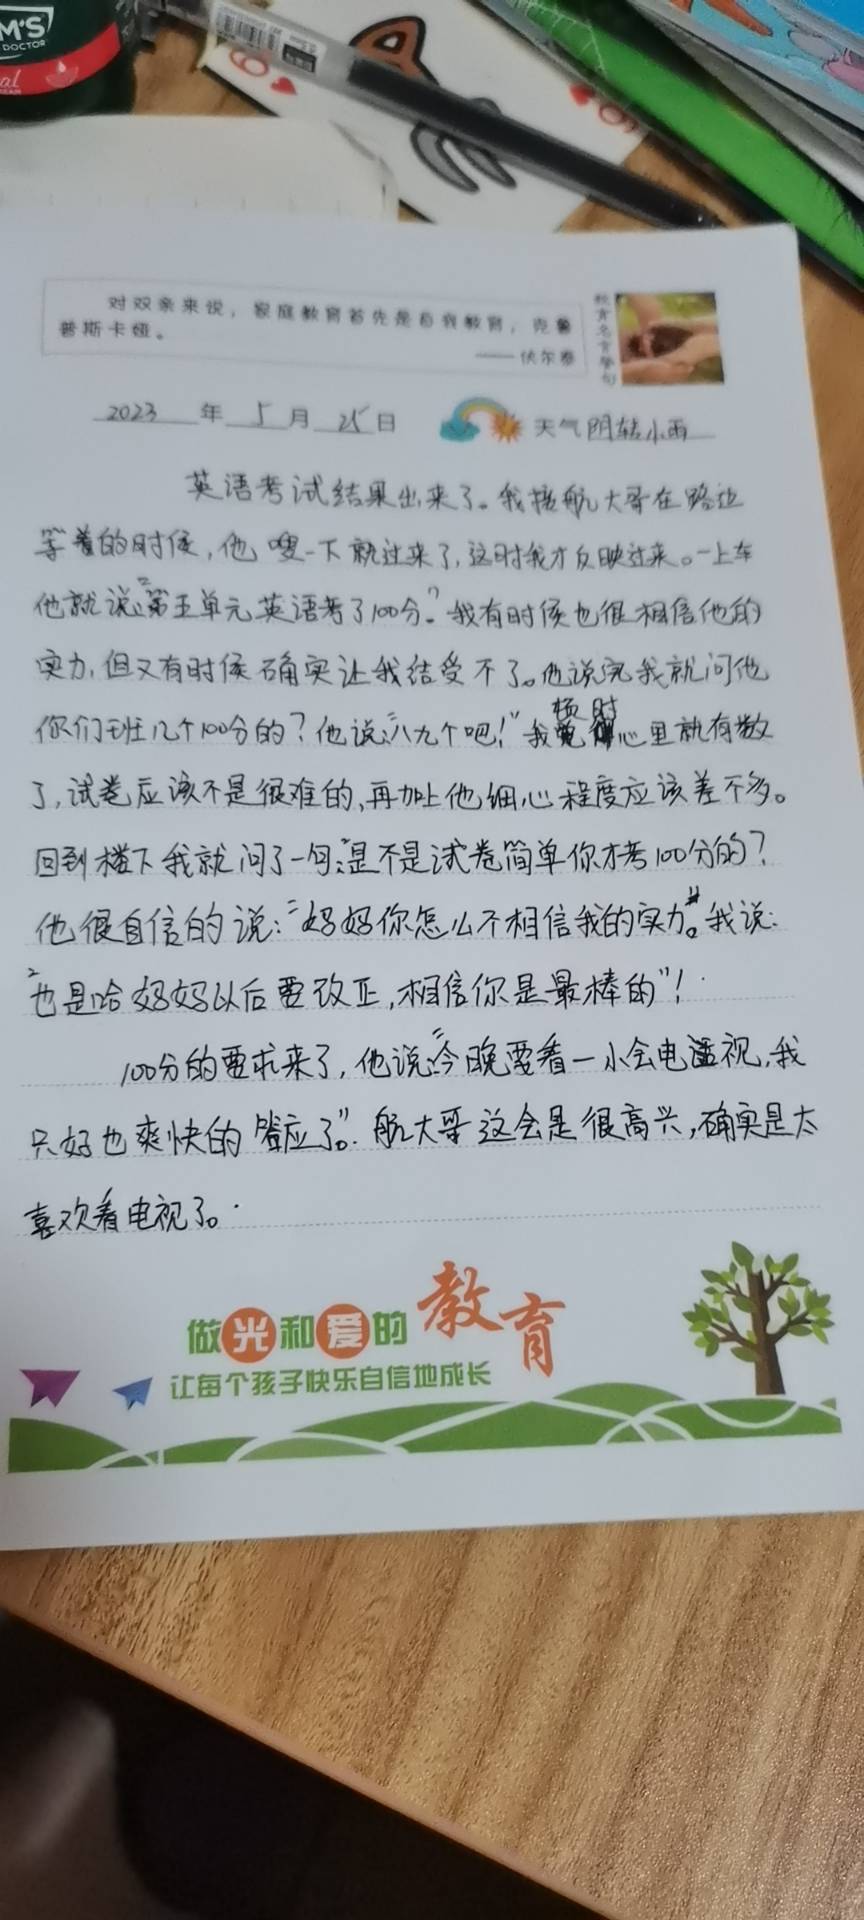 M'S
DOCTOR
对双亲来说，家庭教育首先是自我教育，克鲁
普斯卡娅。
——伏尔泰
教育名言警句
2023年5月25日
天气阴转小雨
英语考试结果出来了。我接航大哥在路边
等着的时候，他嗖一下就过来了，这时我才反映过来。一上车
他就说：“第五单元英语考了100分。”我有时候也很相信他的
实力，但又有时候确实让我结受不了。他说完我就问他
你们班几个100分的？他说：“八九个吧！”我顿时心里就有数
了，试卷应该不是很难的、再加上他细心程度应该差不多。
回到楼下我就问了一句：“是不是试卷简单你才考100分的？
他很自信的说：“妈妈你怎么不相信我的实力。”我说：
“也是哈妈妈以后要改正，相信你是最棒的”！
100分的要求来了，他说：“今晚要看一小会电视，我
只好也爽快的答应了”。航大哥这会是很高兴，确实是太
喜欢看电视了。
做光和爱的教育
让每个孩子快乐自信地成长